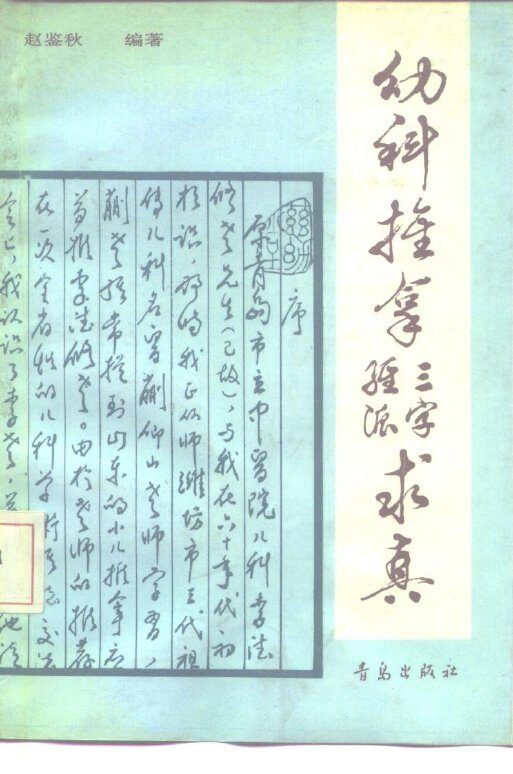 赵鉴秋 编著
幼科推拿三字经派求真
序
原青岛市立中医院儿科李德
修老先生(已故),与我在六十年代初
相识。那时我正从师潍坊市三代祖
传儿科名医蒯仰山老师学习,
蒯老经常提到山东的小儿推拿应
首推李德修老。由于老师的推荐
在一次全省性的儿科学术
交流
会上,我认识了李老,
青岛出版社